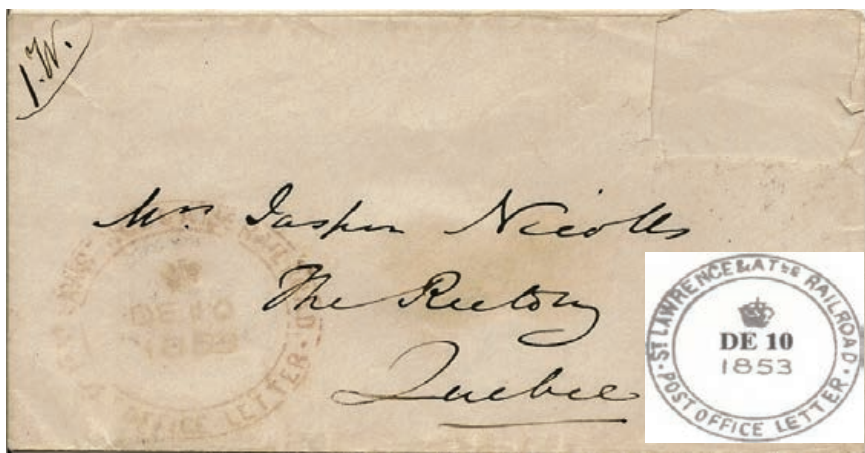 J.W.
Mrs. Jasper Nicolls
The Rectory
Quebec
DE 10
1853
OFFICE LETTER
ST LAWRENCE & ATce RAILROAD
DE 10
1853
POST OFFICE LETTER